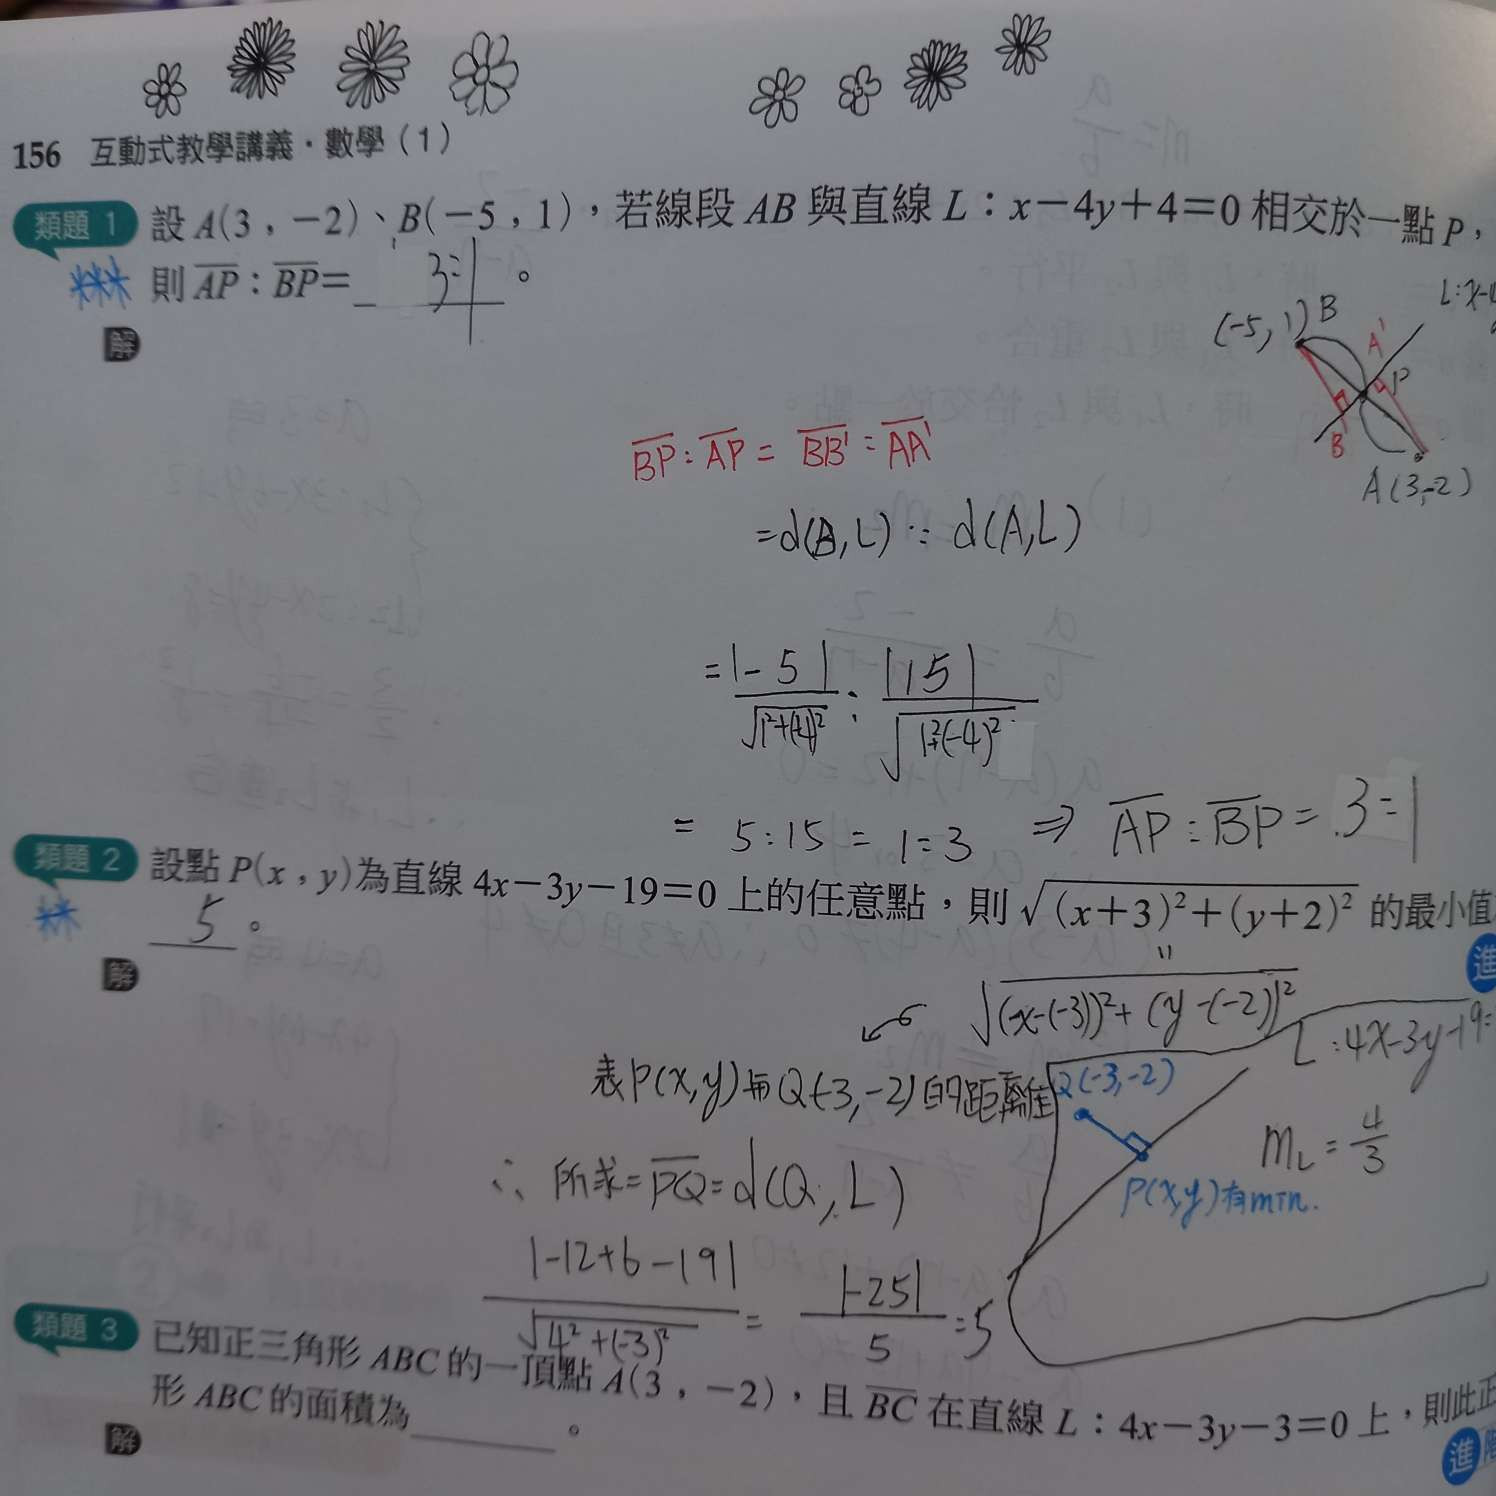 156 互動式教學講義·數學(1)
類題 1 設 A(3，-2)、B(-5，1)，若線段 AB 與直線 L：x-4y+4=0 相交於一點 P，
*** 則 AP：BP= 3:1 。
解
L:x-4
(-5, 1) B
A'
P
B'
A(3,-2)
BP:AP = BB':AA'
=d(B,L) : d(A,L)
= |-5| / √1²+(-4)² : |15| / √1²+(-4)²
= 5:15 = 1:3 ⇒ AP:BP = 3:1
類題 2 設點 P(x，y)為直線 4x-3y-19=0 上的任意點，則 √(x+3)²+(y+2)² 的最小值
** 5 。
解
進
√(x-(-3))²+(y-(-2))²
L:4x-3y-19=
表P(x,y)與Q(-3,-2)的距離
Q(-3,-2)
mL = 4/3
∴ 所求=PQ=d(Q,L)
P(x,y)有min.
|-12+6-19| / √4²+(-3)² = |-25| / 5 =5
類題 3 已知正三角形 ABC 的一頂點 A(3，-2)，且 BC 在直線 L：4x-3y-3=0 上，則此正
形 ABC 的面積為 。
解
進